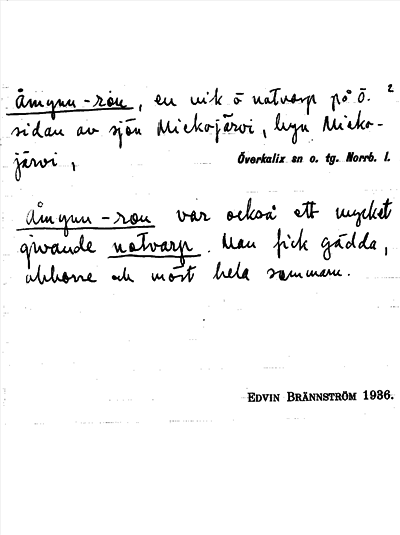 åmynn-ron, en vik o notvarp på ö. 2
sidan av sjön Mickojärvi, byn Micko-
järvi,
Överkalix sn o. tg. Norrb. l.
Åmynn-ron var också ett mycket
givande notvarp. Man fick gädda,
abborre och mört hela sommarn.
EDVIN BRÄNNSTRÖM 1936.